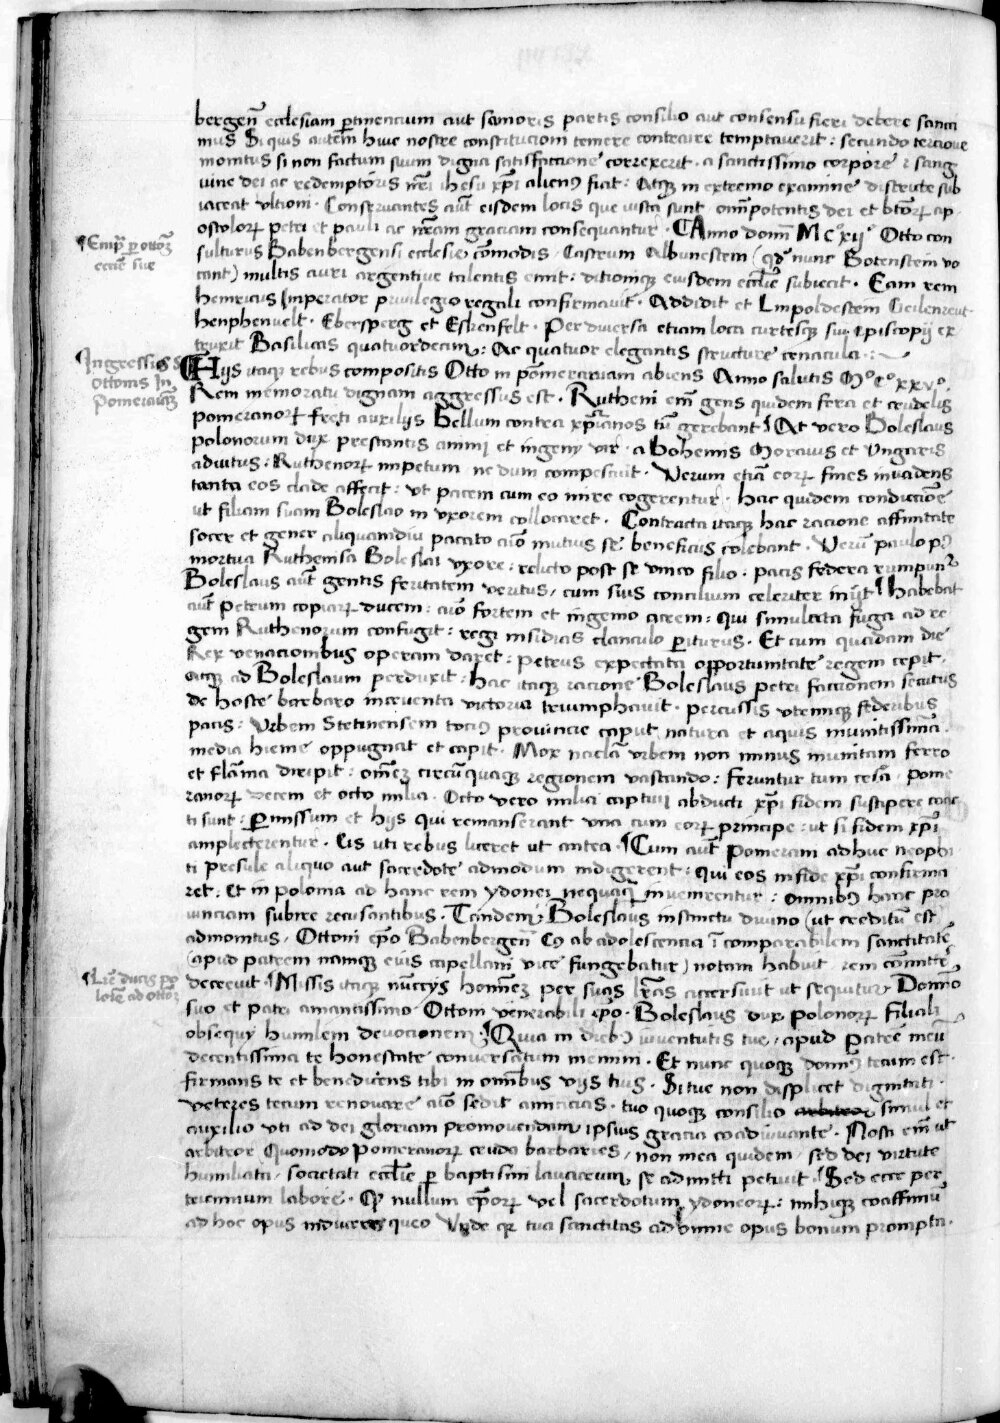 bergen̄ ecclesiam ꝑtinencium aut sanioris partis consilio aut consensu fieri debere sanci
mus Si quis autem̄ huic nostre constitucioni temere contraire temptauerit : secundo tercioue
monitus si non factum suum digna satisfactione correxerit · a sanctissimo corpore ⁊ sang
uine dei ac redemptoris nr̄i ihesu xp̄i alienꝰ fiat : Atqꝫ in extremo examine districte sub
iaceat ultioni · Conseruantes aūt eisdem locis que iusta sunt · om̄ipotentis dei et btōꝝ ap
ostoloꝝ petri et pauli ac nr̄am graciam consequantur · Anno domī M c° xij° Otto con
¶ Emp̄ ꝑ ottōeꝫ
eccīe sue
sulturus Babenbergensi ecclesie cōmodis · Castrum Albuinestem (qd̄ nunc Botenstein vo
cant) multis auri argentiue talentis emit : ditioniqꝫ eiusdem eccl̄ie subiecit · Eam rem
henricus Imperator priuilegio regali confirmauit · Addidit et Lupoldestein Geilenreut
henphenuelt · Ebersperg et Eskenfelt · Per diuersa etiam loca curtesqꝫ sui episcopij ex
truxit Basilicas quatuordecim : Ac quatuor elegantis structure cenacula :
Ingressus
ottonis In
Pomeraniā
Hijs itaqꝫ rebus compositis Otto in pomeraniam abiens Anno salutis M° C° xxv°
Rem memoratu dignam aggressus est · Rutheni em̄ gens quidem fera et crudelis
pomeranoꝝ freti auxilijs Bellum contra xp̄ianos tū gerebant At vero Boleslaus
polonorum dux prestantis animi et ingenij vir · a Bohemis Morauis et Ungaris
adiutus : Ruthenoꝝ impetum ne dum compescuit · Verum etiā eoꝝ fines inuadens
tanta eos clade affecit : ut pacem cum eo inire cogerentur · hac quidem condicōe
ut filiam suam Boleslao in uxorem collocaret · Contracta itaqꝫ hac racione affinitate
socer et gener aliquamdiu pacato aīo mutuis se beneficijs colebant · Verū paulo pꝰ
mortua Ruthenisa Boleslai uxore : relicto post se unico filio · pacis federa rumpunꝰ
Boleslaus aūt gentis feritatem veritus / cum suis concilium celeriter inijt Habebat
aūt Petrum copiaꝝ ducem : aīo fortem et ingenio acrem : qui simulata fuga ad re
gem Ruthenorum confugit : regi insidias clanculo ꝑiturus · Et cum quadam die
Rex venacionibus operam daret : petrus expectata opportunitate regem cepit ·
atqꝫ ad Boleslaum perduxit : hac itaqꝫ racione Boleslaus petri factionem secutus
de hoste barbaro incruenta uictoria triumphauit · percussis utrimqꝫ federibus
pacis : Urbem Stetinensem tocius prouincie caput natura et aquis munitissimā
media hieme oppugnat et capit · Mox naclā urbem non minus munitam ferro
et flāma diripit : omēꝫ circūquaqꝫ regionem uastando : feruntur tum cesa · pome
ranoꝝ decem et octo milia · Octo vero milia captiui abducti xp̄i fidem suscipere coac
ti sunt : ꝑmissum et hijs qui remanserant una cum eoꝝ principe : ut si fidem xp̄i
amplecterentur · Eis uti rebus liceret ut antea · ¶ Cum aūt Pomerani adhuc neophi
ti presule aliquo aut sacerdote admodum indigerent : qui eos in fide xp̄i confirma
ret : et in polonia ad hanc rem ydonei nequaqꝫ inuenirentur : omnibꝰ hanc pro
uinciam subire recusantibus · Tandem Boleslaus instinctu diuino (ut creditū est)
admonitus / Ottoni ep̄o Babenbergen̄ Cꝰ ab adolescencia īcomparabilem sanctitatē
(apud patrem namqꝫ eius capellani vice fungebatur) notam habuit rem cōmittē
¶ Lr̄e ducis po
lonie ad ottoēꝫ
decreuit ¶ Missis itaqꝫ nūccijs homēꝫ per suas lr̄as accersiuit ut sequitur Domīo
suo et patri amantissimo Ottoni venerabili ep̄o · Boleslaus dux polonoꝝ filialis
obsequij humilem deuocionem ¶ Quia in diebꝰ iuuentutis tue / apud patrē meū
decentissima te honestate conuersatum memini · Et nunc quoqꝫ domīꝰ tecum est ·
firmans te et benedicens tibi in omībus vijs tuis · Si tue non displicet dignitati ·
veteres tecum renouare aīo sedit amicicias · tuo quoqꝫ consilio arbitror simul et
auxilio uti ad dei gloriam promouendam ipsius gracia coadiuuante · Nosti em̄ ut
arbitror Quomodo Pomeranoꝝ cruda barbaries / non mea quidem / sed dei virtute
humiliata / societati eccl̄ie ꝑ baptismi lauacrum se admitti petiuit · Sed ecce per
triennium labore · Qꝫ nullum ep̄oꝝ vel sacerdotum ydoneoꝝ : mihiqꝫ coaffiniū
ad hoc opus inducere queo Unde qꝛ tua sanctitas ad omne opus bonum prompta ·